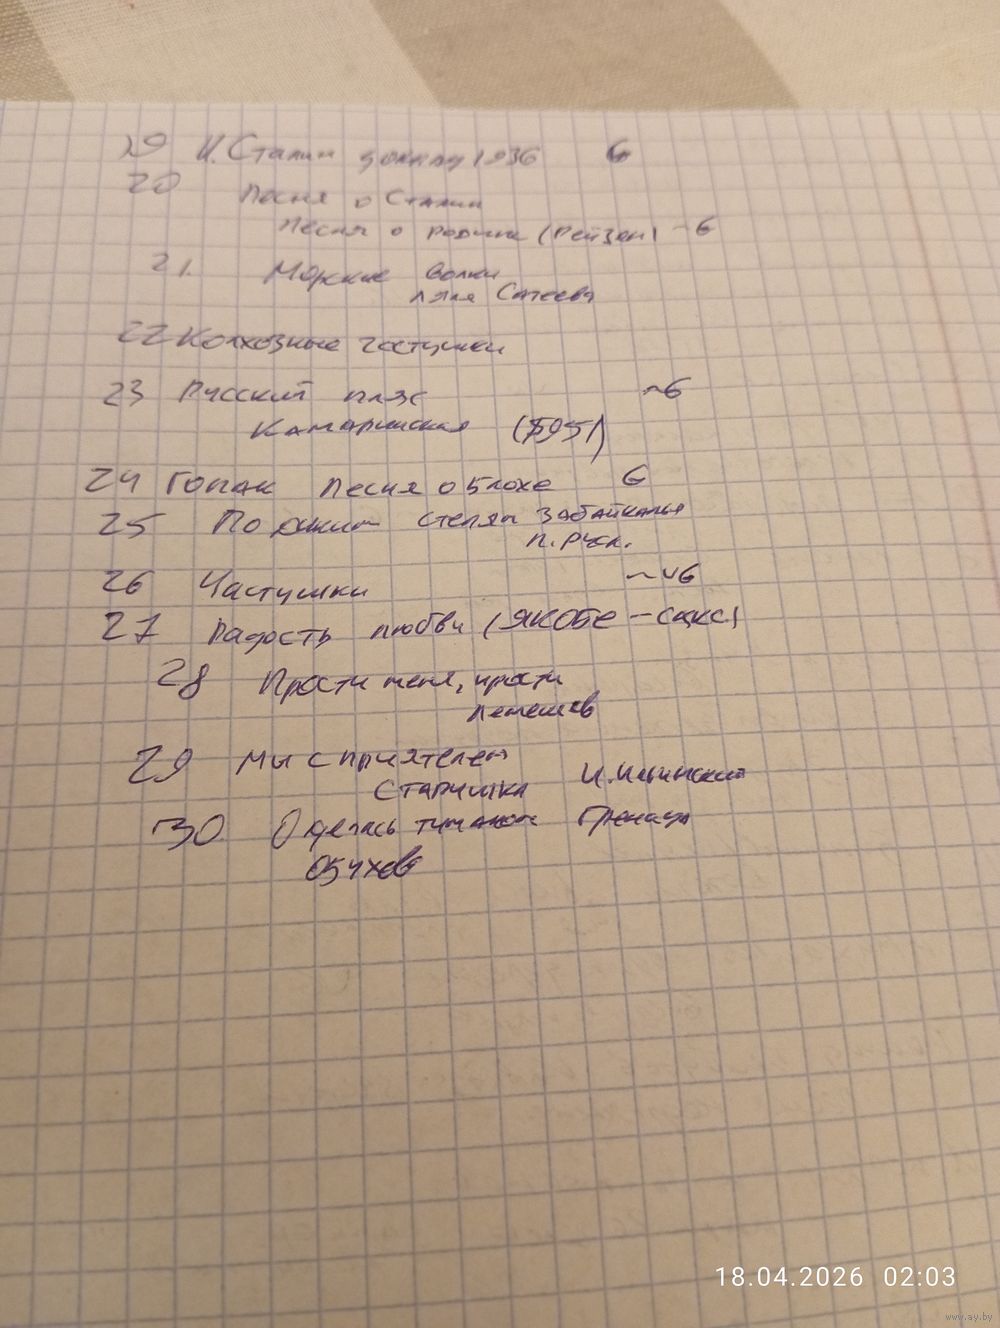 19 И. Сталин доклад 1936 G
20 Песня о Сталин
Песня о родине (Рейзен) - G
21. Морские волки
Ляля Сатеева
22 Колхозные частушки
23 Русский пляс ~G
Камаринская (1951)
24 Гопак Песня о блохе G
25 По диким степям Забайкалья
п. Русл.
26 Частушки ~VG
27 Радость любви (ЯКОБЕ - сакс)
28 Прости меня, прости
Лемешев
29 Мы с приятелем
Старушка И. Ильинский
30 Оделась туманом Гренада
Обухова
18.04.2026 02:03
www.ay.by